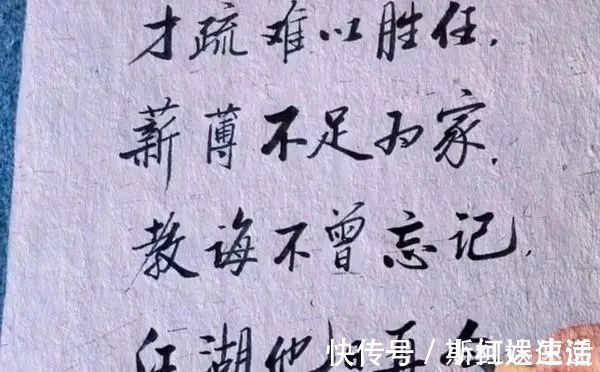 才疏难以胜任,
薪薄不足为家,
教诲不曾忘记,
江湖他日再
快传号 / 斯